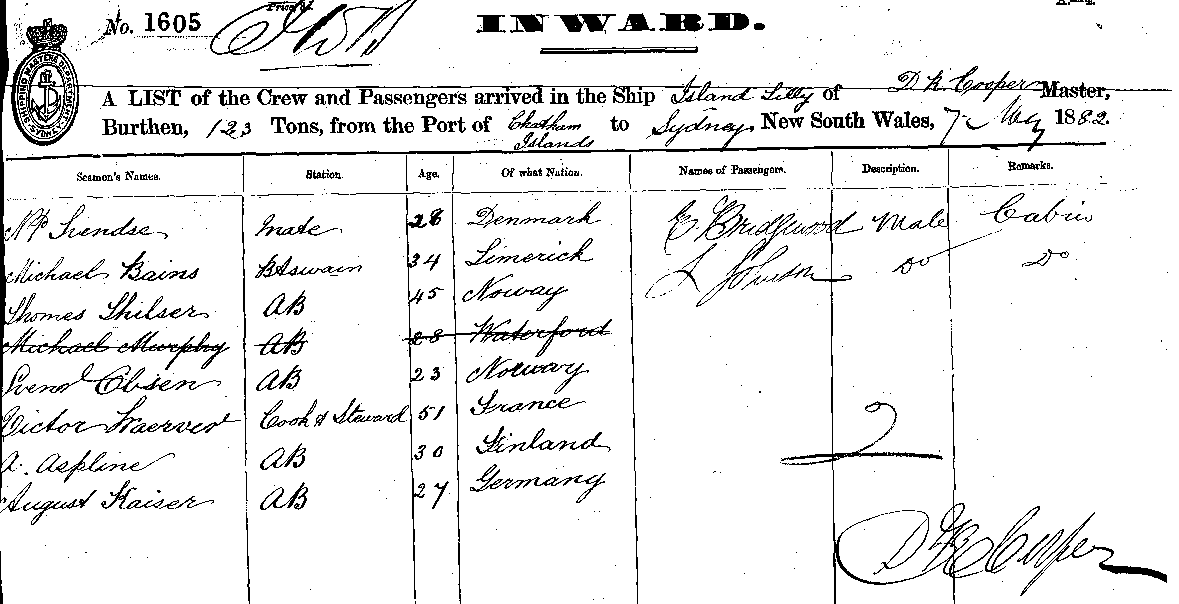 No. 1605
INWARD.
A LIST of the Crew and Passengers arrived in the Ship Island Lilly of D R Cooper Master,
Burthen, 123 Tons, from the Port of Chatham Islands to Sydney, New South Wales, 7 May 1882.
Seamen's Names. Station. Age. Of what Nation. Names of Passengers. Description. Remarks.
Mate 28 Denmark E. Bridgwood Male Cabin
Michael Bains BtSwain 34 Limerick Do Do
Thomas AB 45 Noway
Michael Murphy AB 28 Waterford
AB 23 Norway
Victor Cook & Steward 51 France
A. Aspline AB 30 Finland
August Kaiser AB 27 Germany
2
D R Cooper